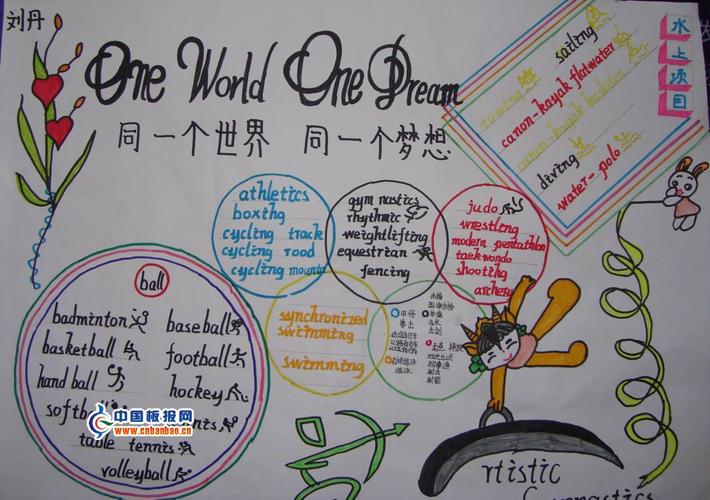 刘丹
One World One Dream
同一个世界 同一个梦想
水上项目
sailing
rowing
canon-kayak flatwater
canon-kayak
diving
water-polo
athletics
boxing
cycling track
cycling road
cycling mounta
gymnastics
rhythmic
weightlifting
equestrian
fencing
judo
wrestling
modern pentathlon
taekwondo
shooting
archery
synchronized
swimming
swimming
田径
拳击
游泳
ball
badminton
baseball
basketball
football
handball
hockey
softball
tennis
table tennis
volleyball
中国板报网
www.cnbanbao.cn
rtistic